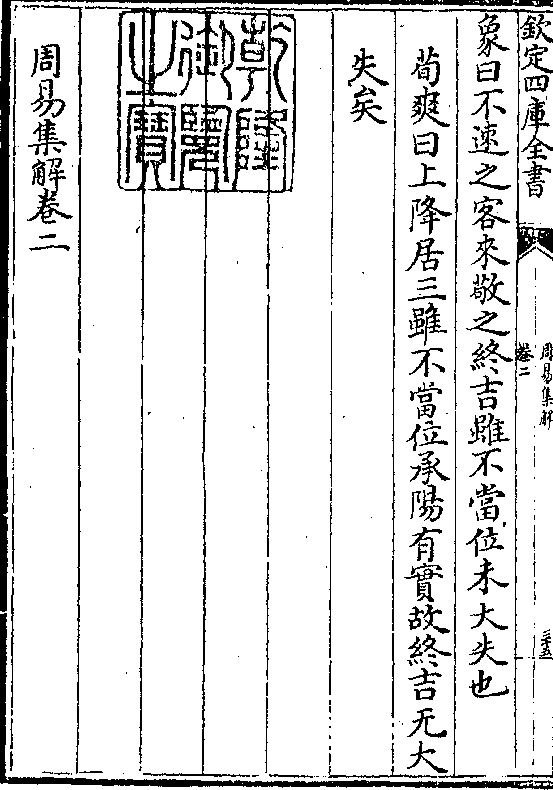 欽定四庫全書
周易集解
卷二
三十五
象曰不速之客來敬之終吉雖不當位未大失也
荀爽曰上降居三雖不當位承陽有實故終吉无大
失矣
乾隆御覽之寶
周易集解卷二